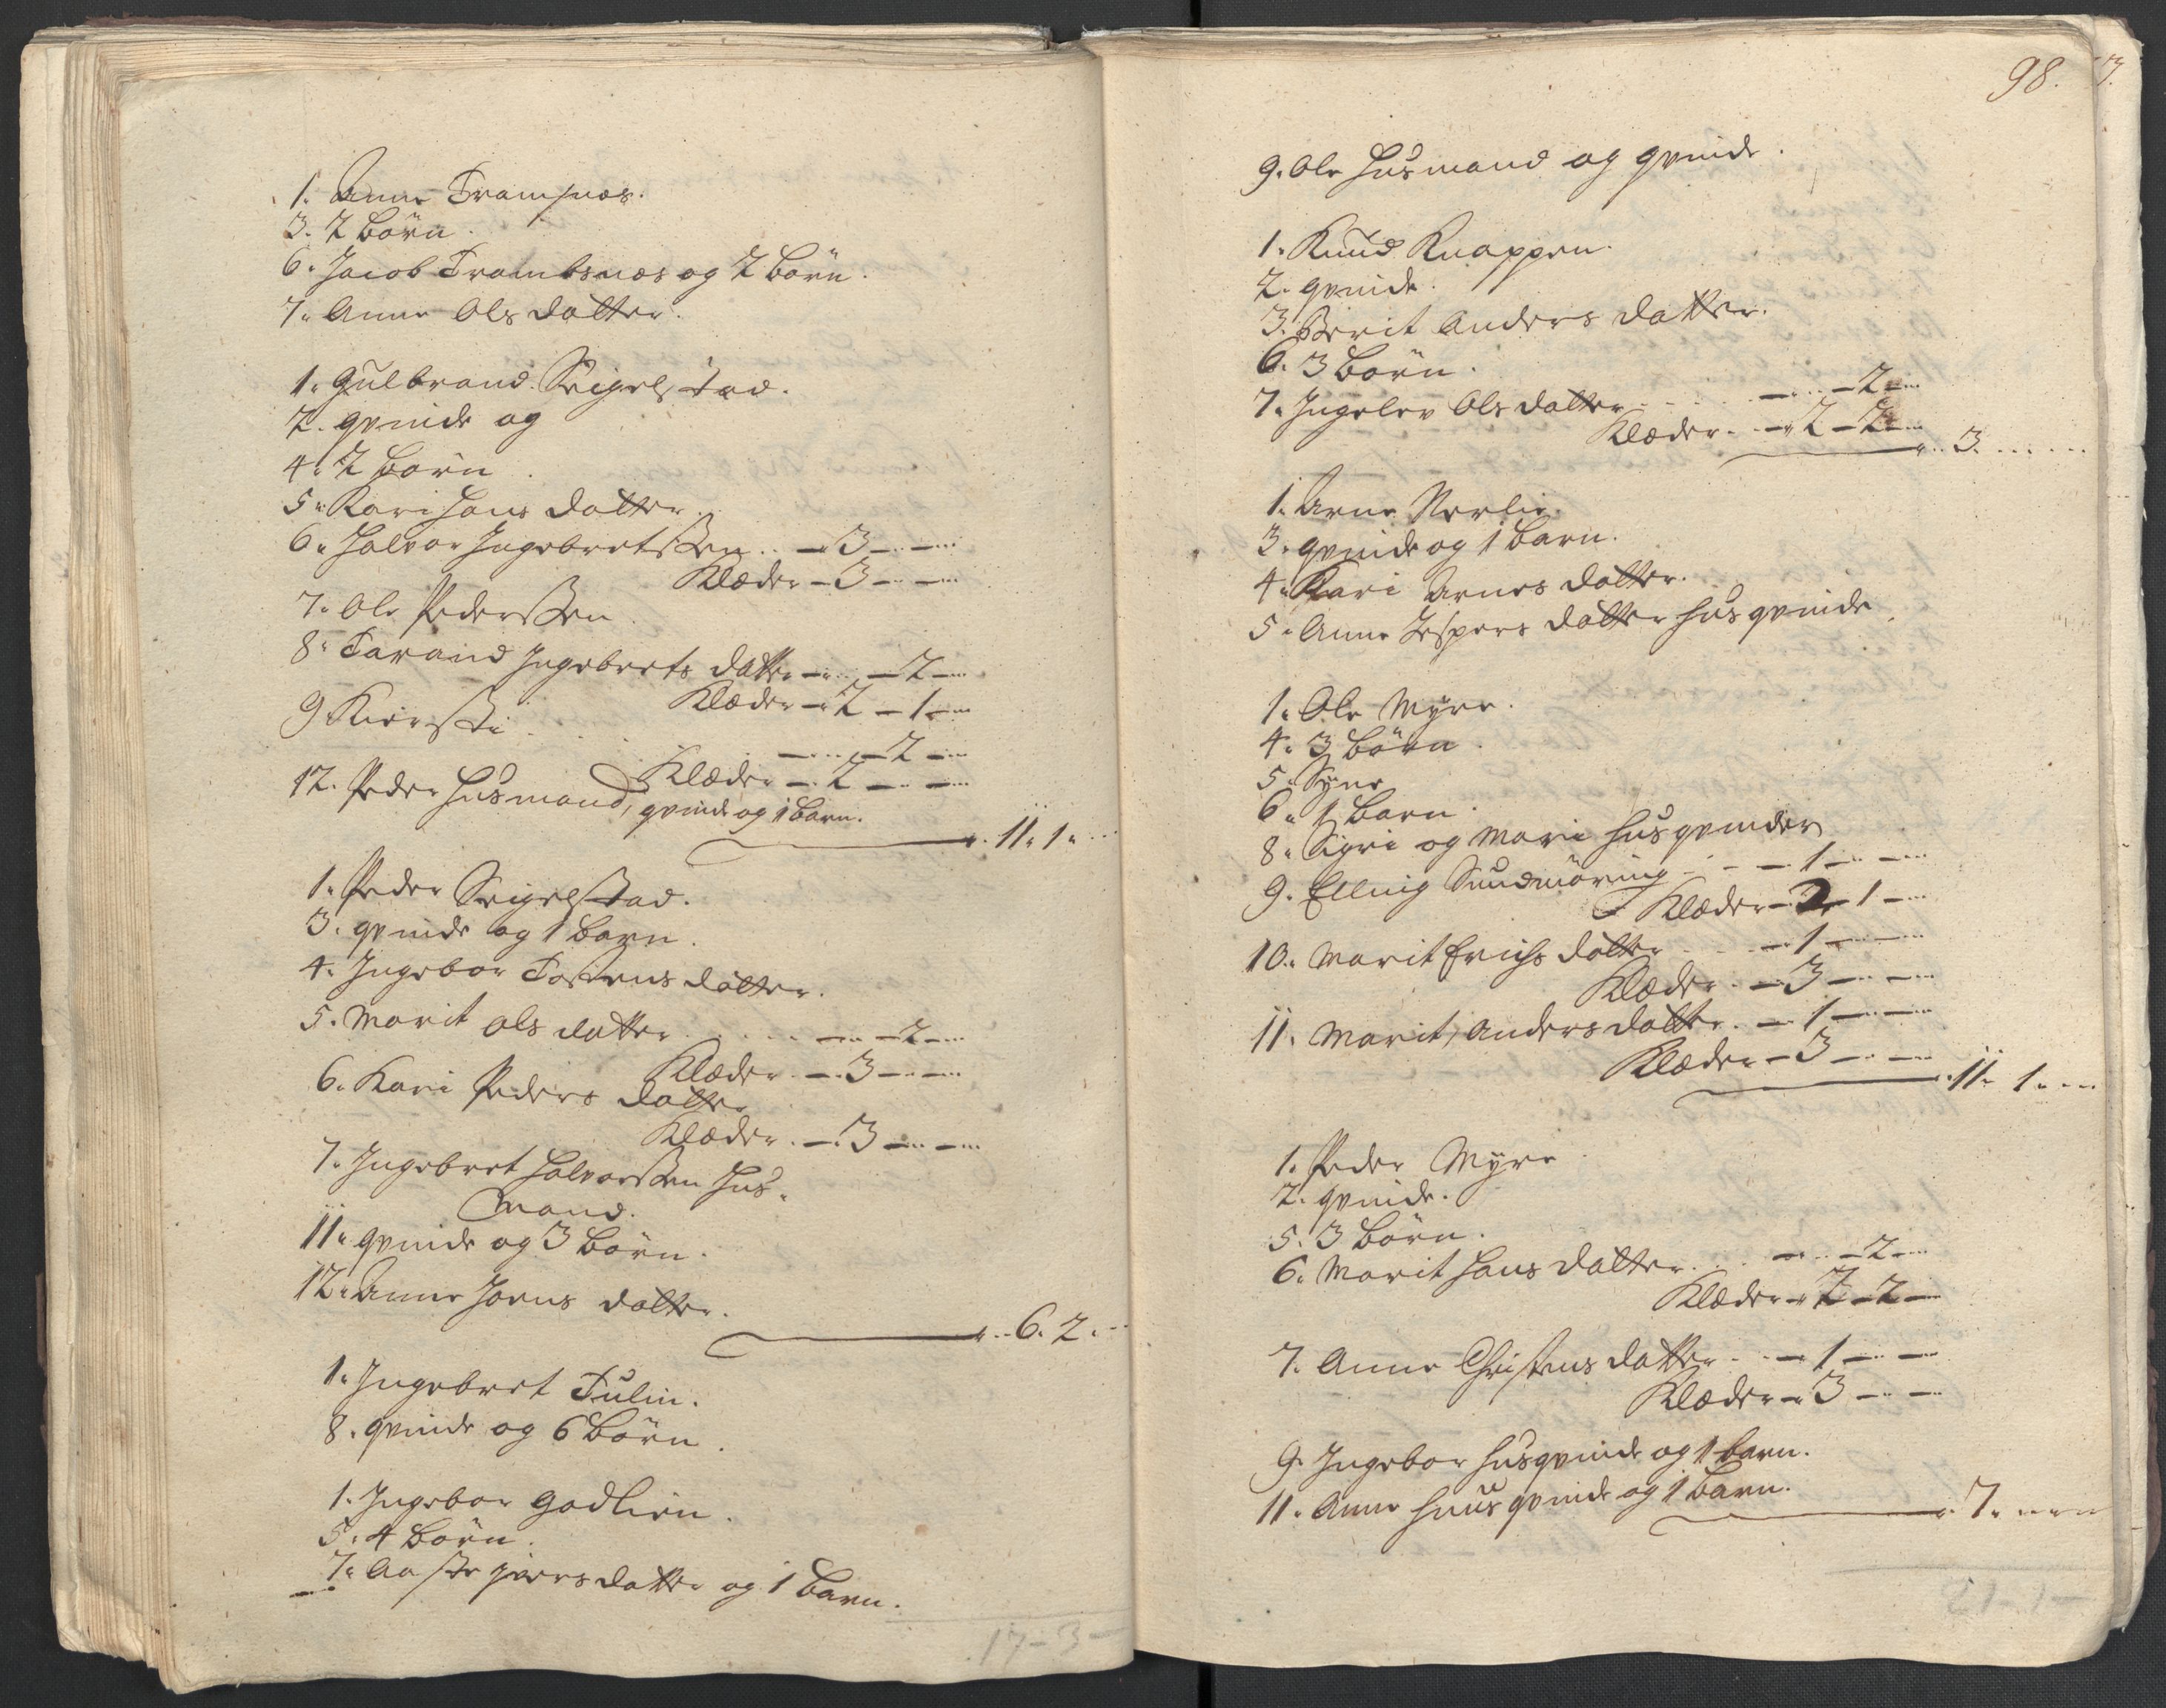 1. Anne Trampnæs.
3. 2 börn.
6. Jacob Trambsnæs og 2 börn.
7. Anne Ols datter.
1. Gulbrand Seigelstad.
2. qvinde og
4. 2 börn.
5. Kari Hans datter.
6. Halvor Ingebretssen .. - 3 - -
Klæder - 3 - -
7. Ole Pederssen
8. Tarand Ingebrets datter - - 2 -
Klæder - 2 - 1 -
9 Kiersti . . . - - 2 -
Klæder - 2 - -
12. Peder Husmand, qvinde og 1 barn.
11. 1.
1. Peder Seigelstad.
3. qvinde og 1 barn.
4. Ingebor Tostens datter.
5. Marit Ols datter . . . . - - 2 -
Klæder . - 3 - -
6. Kari Peders datter
Klæder . - 3 - -
7. Ingebret Halvorssen Hus-
mand.
11. qvinde og 3 börn.
12. Anne Joens datter.
6. 2.
1. Ingebret Tulin.
8. qvinde og 6 börn.
1. Ingebor Godlien.
5. 4 börn.
7. Aaste Joers datter og 1 barn.
17 - 3 -
98.
9. Ole Husmand og qvinde.
1. Knud Knappen.
2. qvinde.
3. Berit Anders datter.
6. 3 börn.
7. Ingelev Ols datter . . - - 2 -
Klæder . - 2 - 2 -
3.
1. Arne Nerlie.
3. qvinde og 1 barn.
4. Kari Arnes datter.
5. Anne Jespers datter husqvinde.
1. Ole Myre.
4. 3 börn.
5. Syne
6. 1 barn.
8. Sigri og Marie husqvinder
9. Elling Sundmöring - - 1 - -
Klæder - 2 - 1 -
10. Marit Erichs datter . . - 1 - -
Klæder . - 3 - -
11. Marit Anders datter . - 1 - -
Klæder - 3 - -
11. 1.
1. Peder Myre.
2. qvinde.
5. 3 börn.
6. Marit Hans datter . . - - 2 -
Klæder - 2 - 2 -
7. Anne Christens datter . - 1 - -
Klæder - 3 - -
9. Ingebor husqvinde og 1 barn.
11. Anne huusqvinde og 1 barn.
7.
21 - 1 -